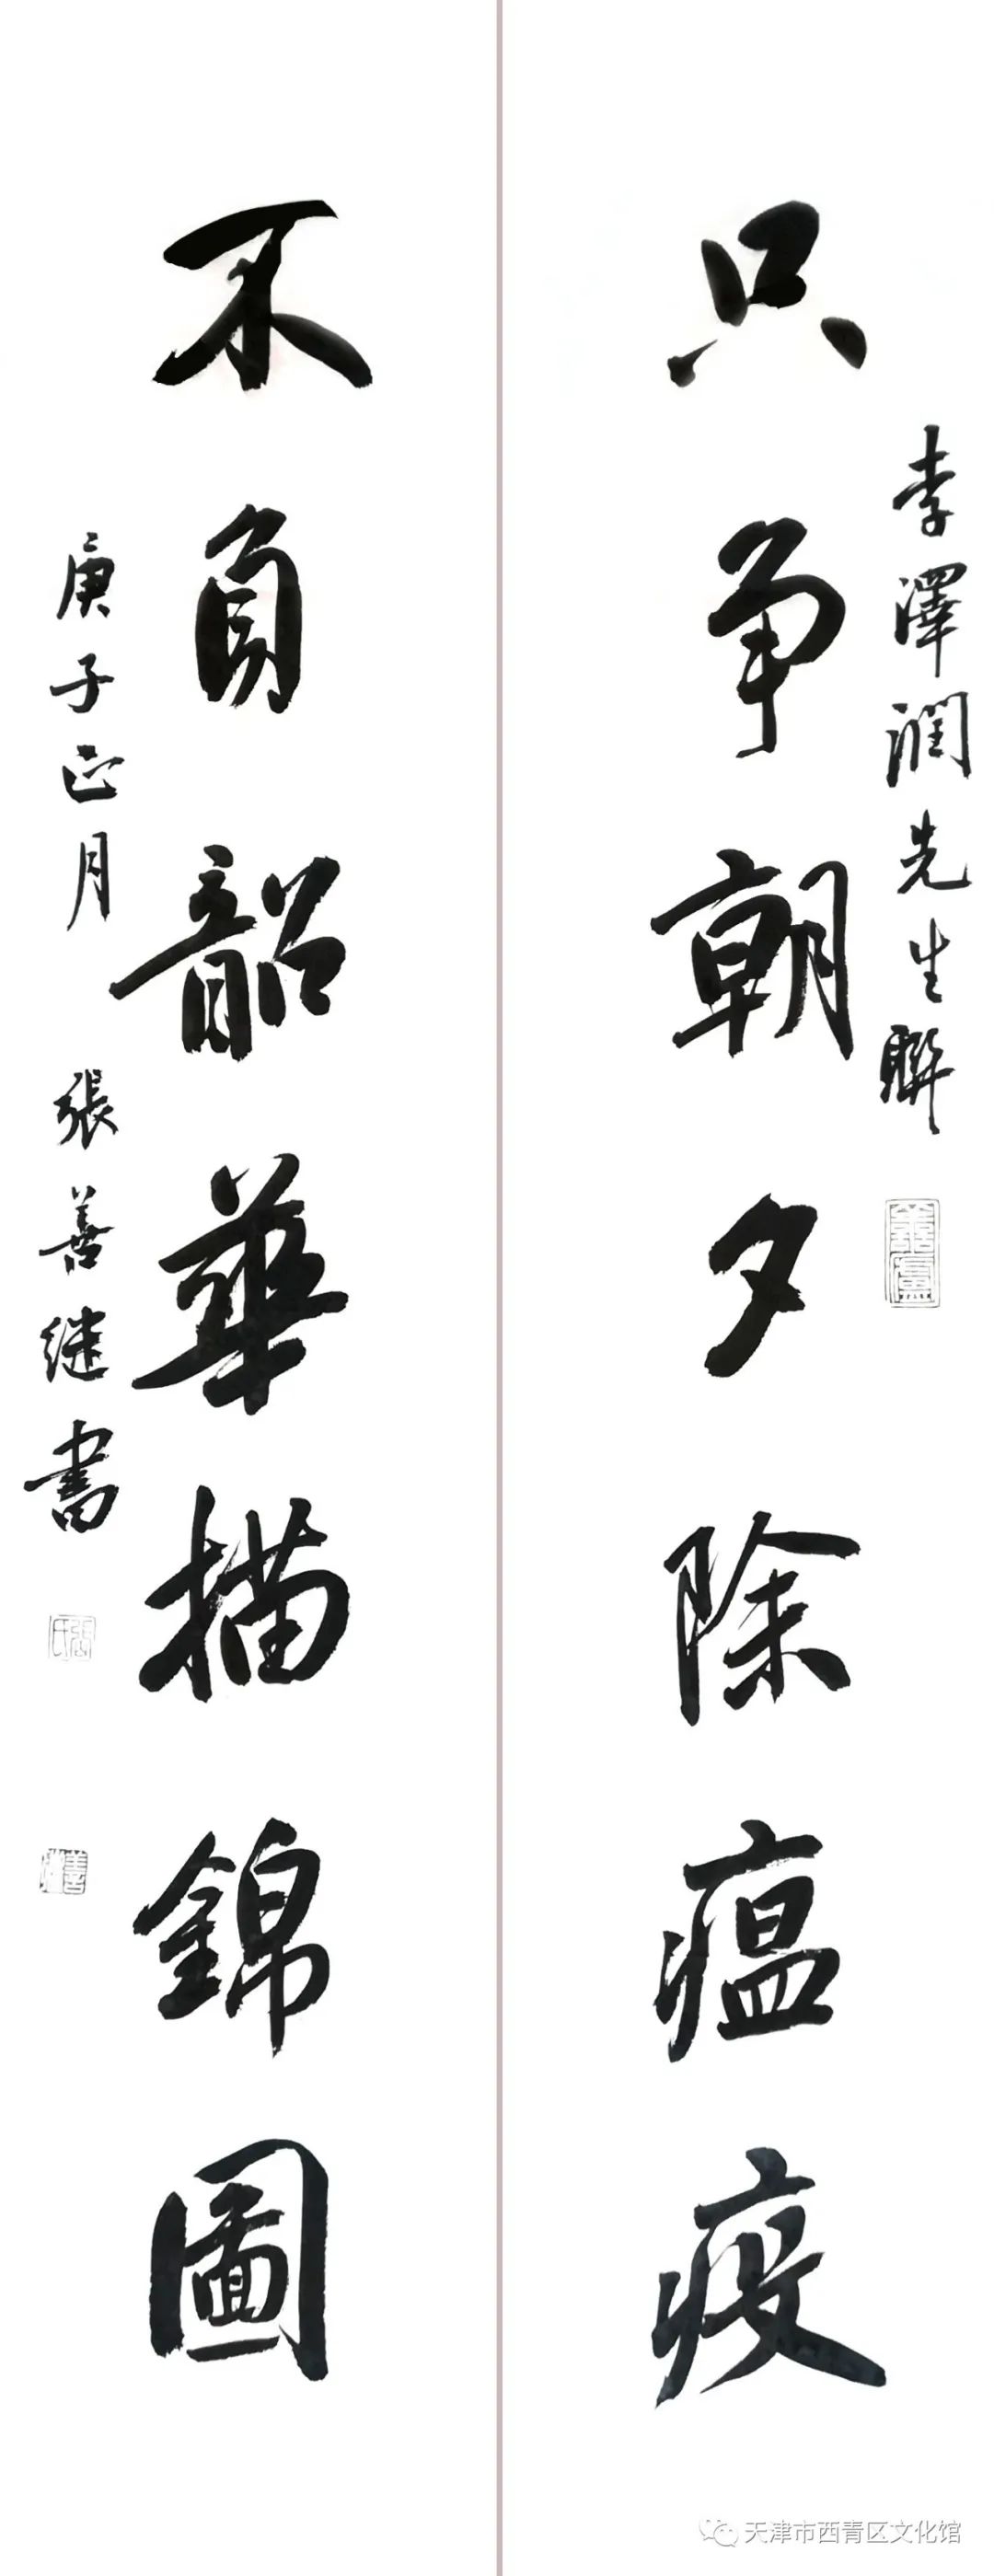 李澤潤先生聯
只争朝夕除瘟疫
不負韶華描錦圖
庚子正月 張善继書
張氏
天津市西青区文化馆